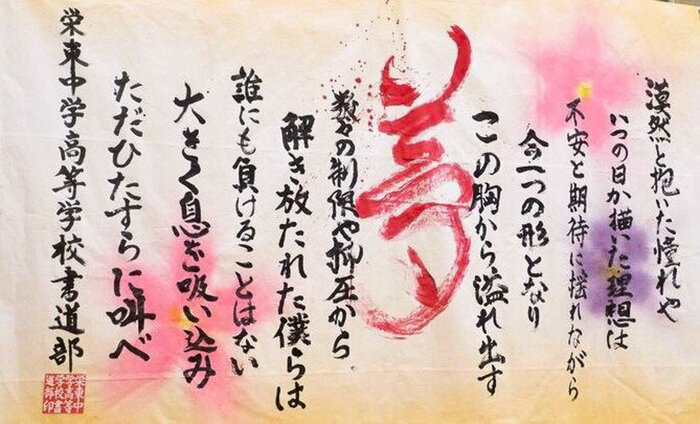 漠然と抱いた憧れや
いつの日か描いた理想は
不安と期待に揺れながら
今一つの形となり
この胸から溢れ出す
夢
数々の制限や抑圧から
解き放たれた僕らは
誰にも負けることはない
大きく息を吸い込み
ただひたすらに叫べ
栄東中学高等学校書道部
栄東中
学高等
学校書
道部印